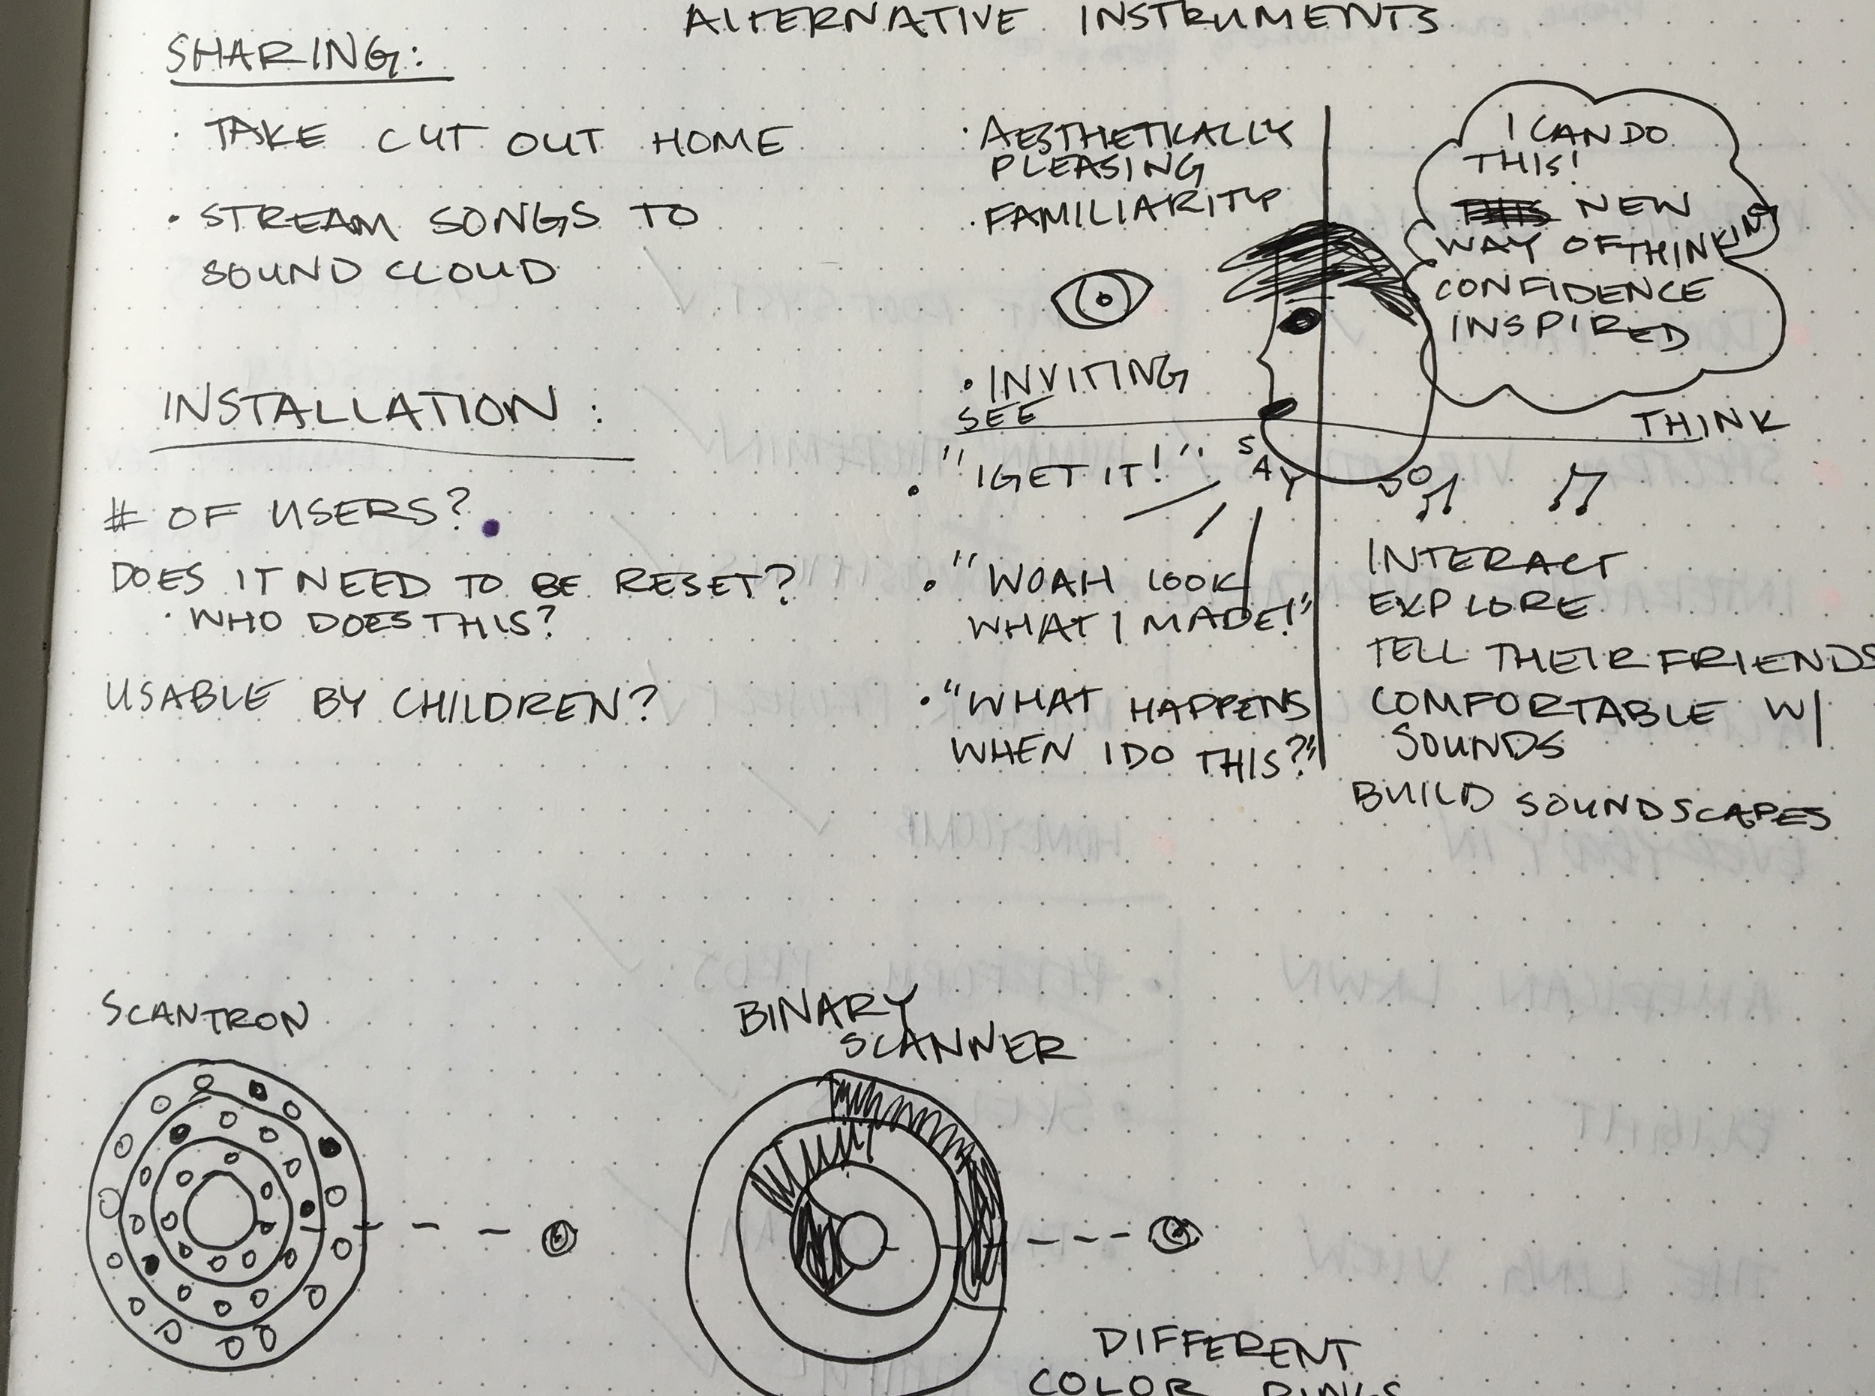 ALTERNATIVE INSTRUMENTS
SHARING:
· TAKE CUT OUT HOME
· STREAM SONGS TO
SOUND CLOUD
INSTALLATION:
# OF USERS?
DOES IT NEED TO BE RESET?
· WHO DOES THIS?
USABLE BY CHILDREN?
· AESTHETICALLY
PLEASING
· FAMILIARITY
· INVITING
SEE
· "I GET IT!"
SAY
· "WOAH LOOK
WHAT I MADE!"
· "WHAT HAPPENS
WHEN I DO THIS?"
I CAN DO
THIS!
NEW
WAY OF THINKING
CONFIDENCE
INSPIRED
THINK
DO
INTERACT
EXPLORE
TELL THEIR FRIENDS
COMFORTABLE W/
SOUNDS
BUILD SOUNDSCAPES
SCANTRON
BINARY
SCANNER
DIFFERENT
COLOR RINGS